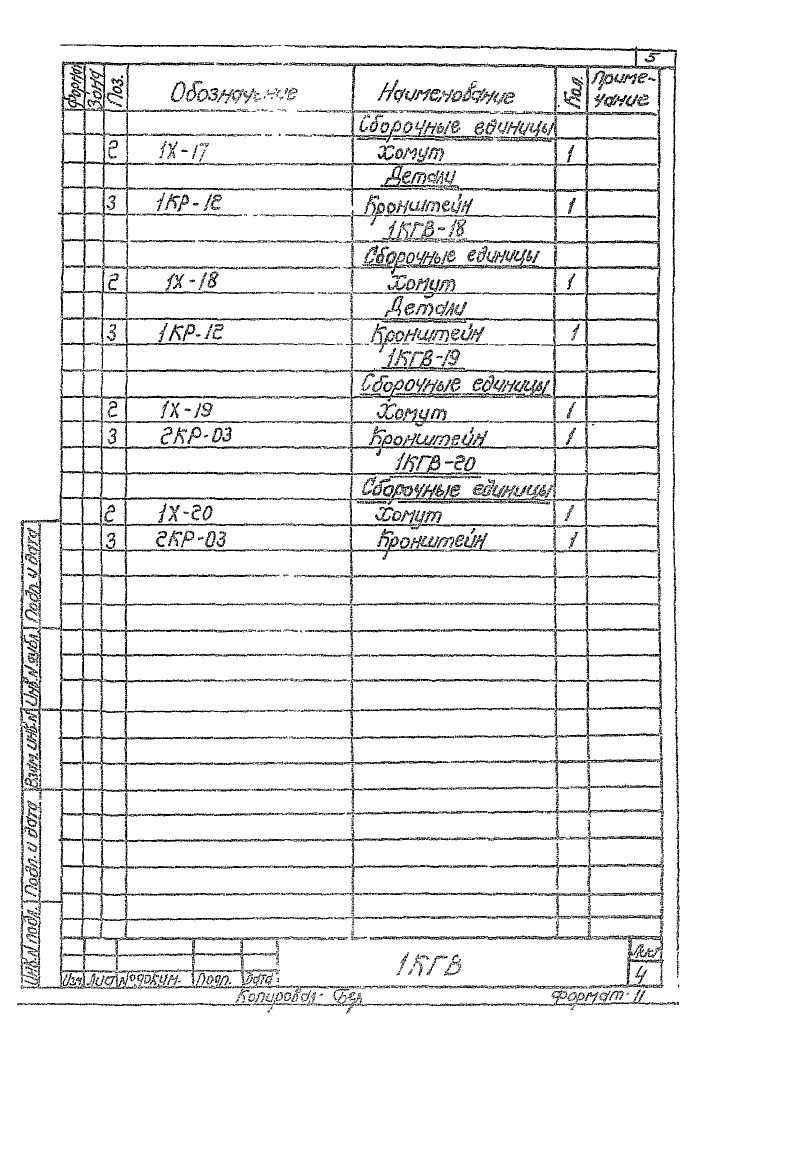 5
Форма Зона Поз. Обозначение Наименование Кол. Приме-
чание
Сборочные единицы
2 1Х-17 Хомут 1
Детали
3 1КР-12 Кронштейн 1
1КГВ-18
Сборочные единицы
2 1Х-18 Хомут 1
Детали
3 1КР-12 Кронштейн 1
1КГВ-19
Сборочные единицы
2 1Х-19 Хомут 1
3 2КР-03 Кронштейн 1
1КГВ-20
Сборочные единицы
2 1Х-20 Хомут 1
3 2КР-03 Кронштейн 1
Инв.N подл. Подп. и дата Взам.инв.N Инв.N дубл. Подп. и дата
1КГВ
Лист
4
Изм Лист №докум. Подп. Дата
Копировал: Формат 11